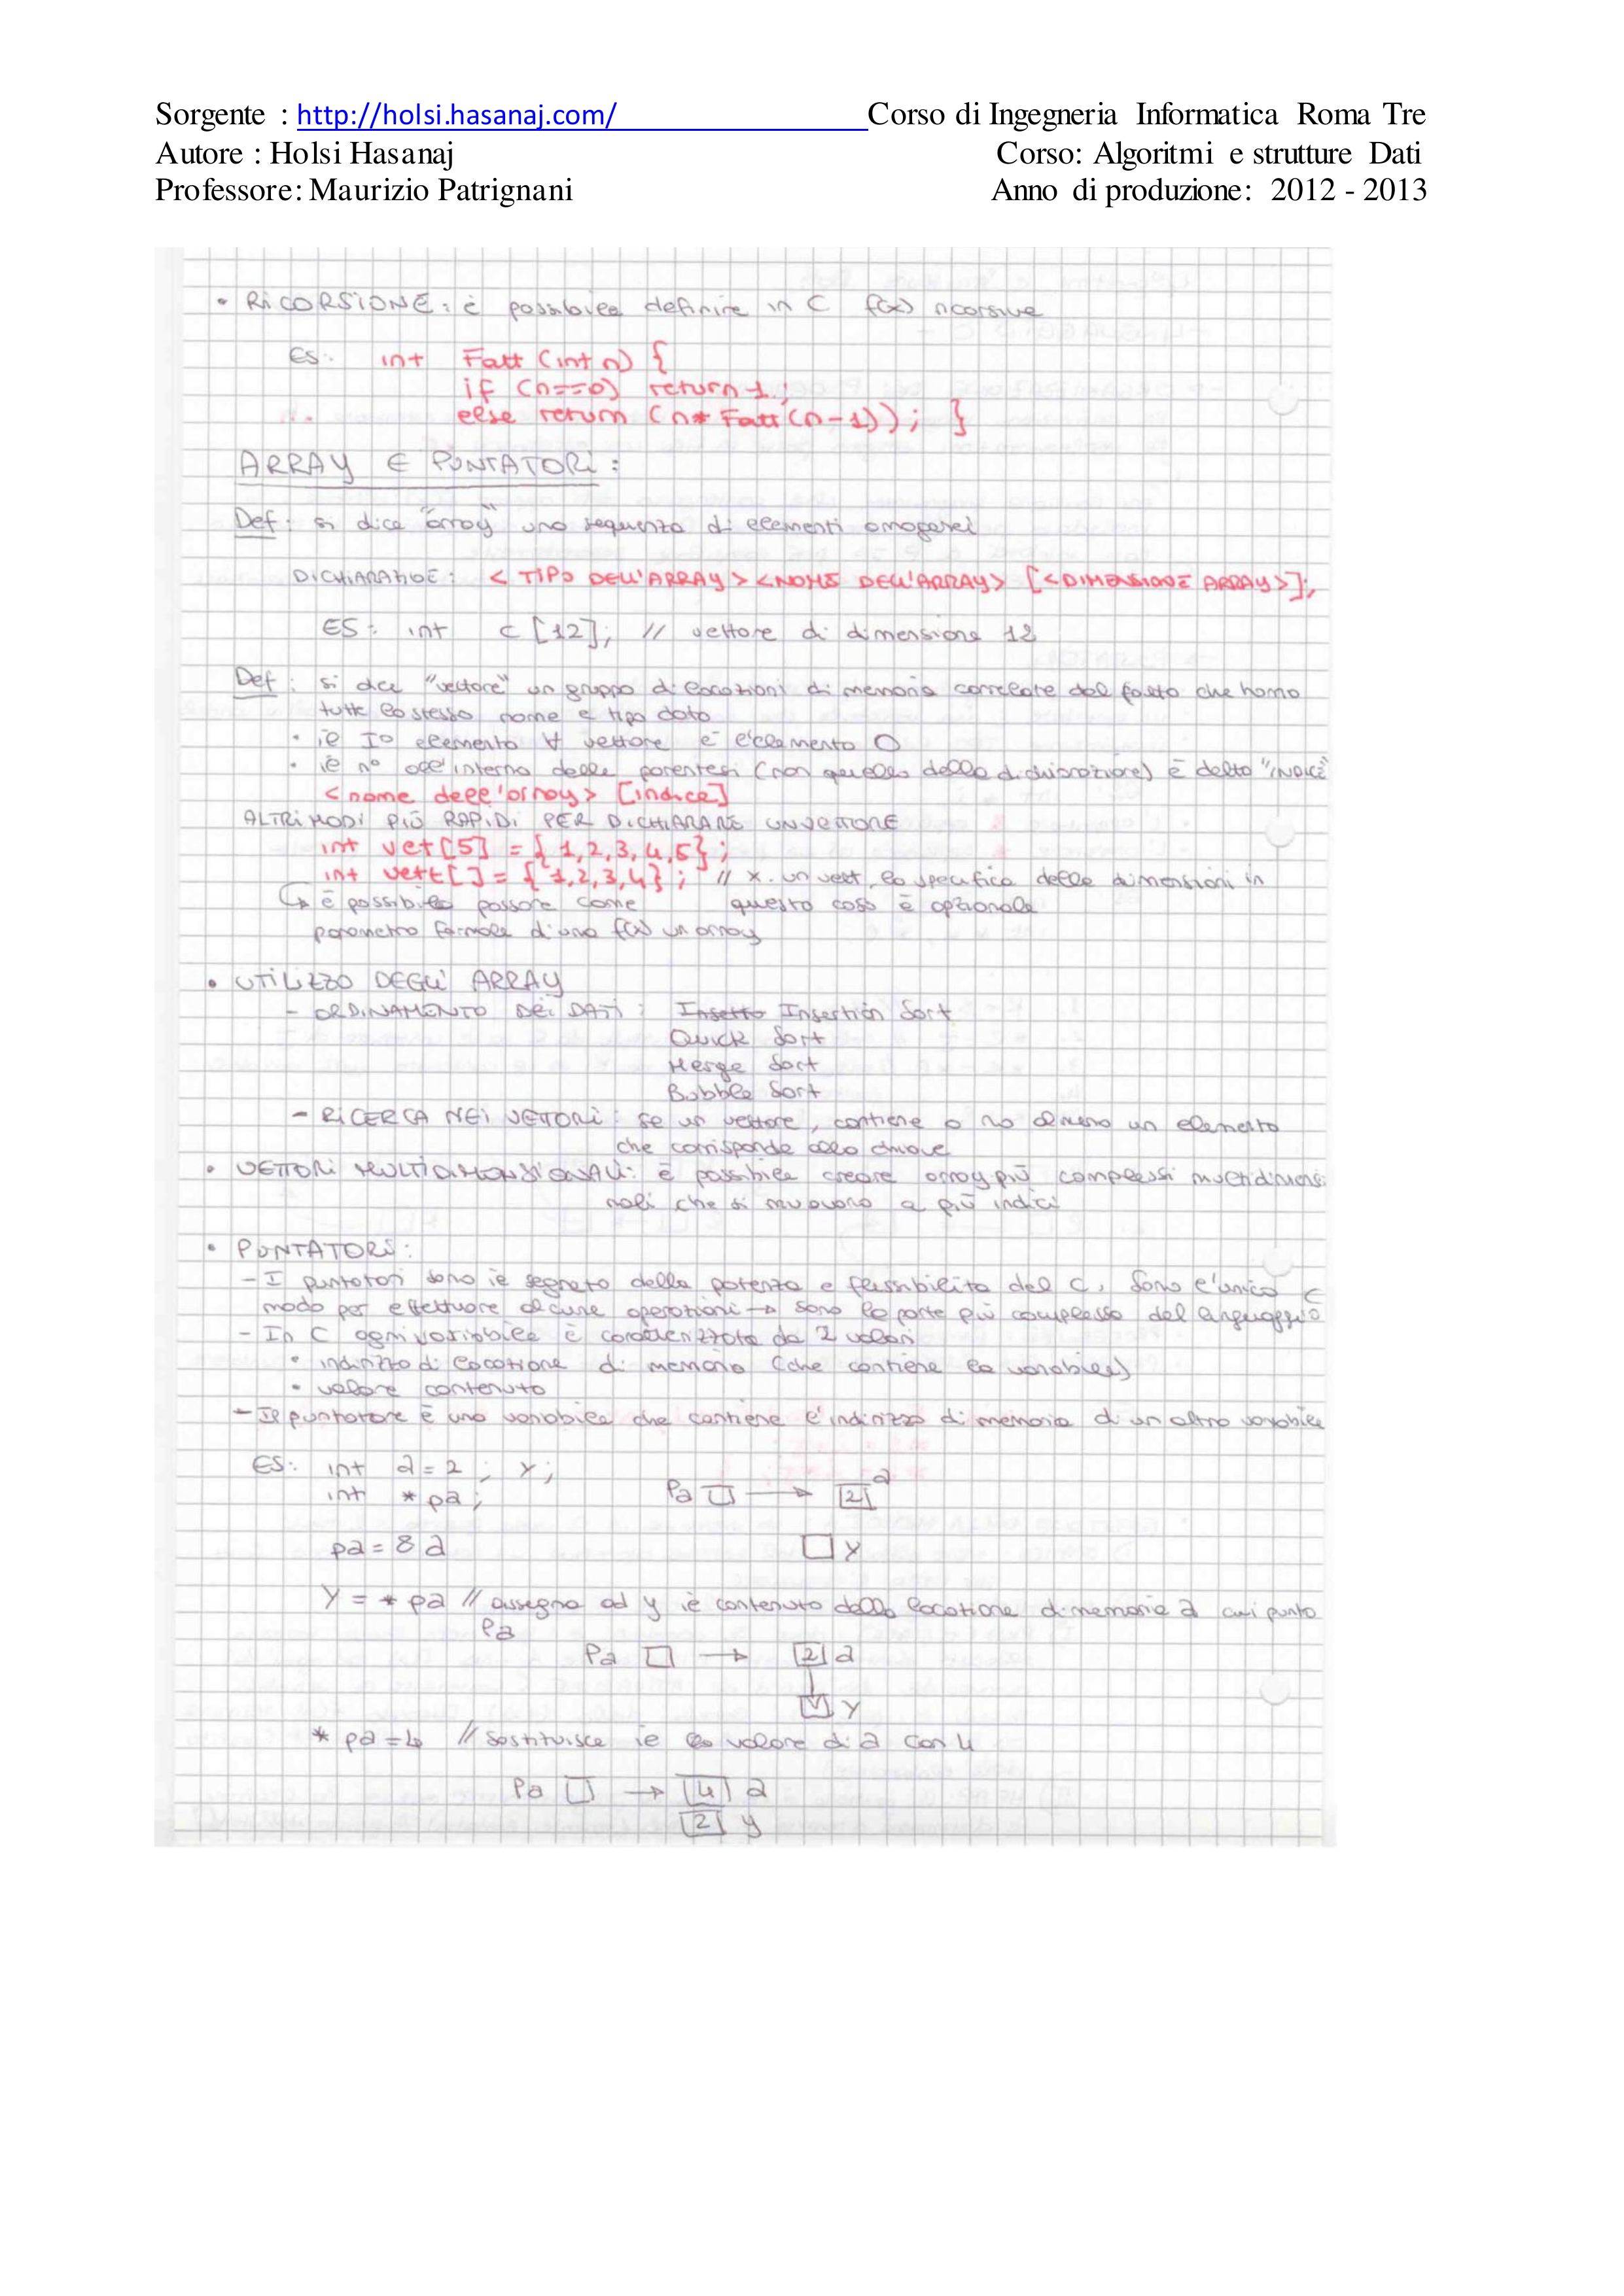 Sorgente : http://holsi.hasanaj.com/ Corso di Ingegneria Informatica Roma Tre
Autore : Holsi Hasanaj Corso: Algoritmi e strutture Dati
Professore: Maurizio Patrignani Anno di produzione: 2012 - 2013
• RICORSIONE: è possibile definire in C f(x) ricorsive
ES: int Fatt (int n) {
if (n==0) return 1;
else return (n* Fatt(n-1)); }
ARRAY E PUNTATORI:
Def: si dice "array" una sequenza di elementi omogenei
DICHIARAZIOE: < TIPO DELL'ARRAY > <NOME DELL'ARRAY> [<DIMENSIONE ARRAY>];
ES: int c [12]; // vettore di dimensione 12
Def: si dice "vettore" un gruppo di locazioni di memoria correlate dal fatto che hanno
tutte lo stesso nome e tipo dato
• il I° elemento ∀ vettore è l'elemento 0
• il n° all'interno delle parentesi (non quello della dichiarazione) è detto "INDICE"
<nome dell'array> [indice]
ALTRI MODI PIÙ RAPIDI PER DICHIARARE UN VETTORE
int vet[5] = {1,2,3,4,5};
int vett[] = {1,2,3,4}; // x un vett, la specifica delle dimensioni in
↳ è possibile passare come questo caso è opzionale
parametro formale d'una f(x) un array
• UTILIZZO DEGLI ARRAY
- ORDINAMENTO DEI DATI: Insetto Insertion Sort
Quick Sort
Merge Sort
Bubble Sort
- RICERCA NEI VETTORI: se un vettore, contiene o no almeno un elemento
che corrisponde alla chiave
• VETTORI MULTIDIMENSIONALI: è possibile creare array più complessi multidimensi
nali che si muovono a più indici
• PUNTATORI:
- I puntatori sono il segreto della potenza e flessibilità del C, sono l'unico
modo per effettuare alcune operazioni → sono la parte più complessa del linguaggio C
- In C ogni variabile è caratterizzata da 2 valori
• indirizzo di locazione di memoria (che contiene la variabile)
• valore contenuto
- Il puntatore è una variabile che contiene l'indirizzo di memoria di un altra variabile
ES: int a=2; y;
int *pa; Pa → 2 a
pa = & a y
y = *pa // assegna ad y il contenuto della locazione di memoria a cui punta
Pa
Pa → 2 a
y
*pa=4 // sostituisce il valore di a con 4
Pa → 4 a
2 y